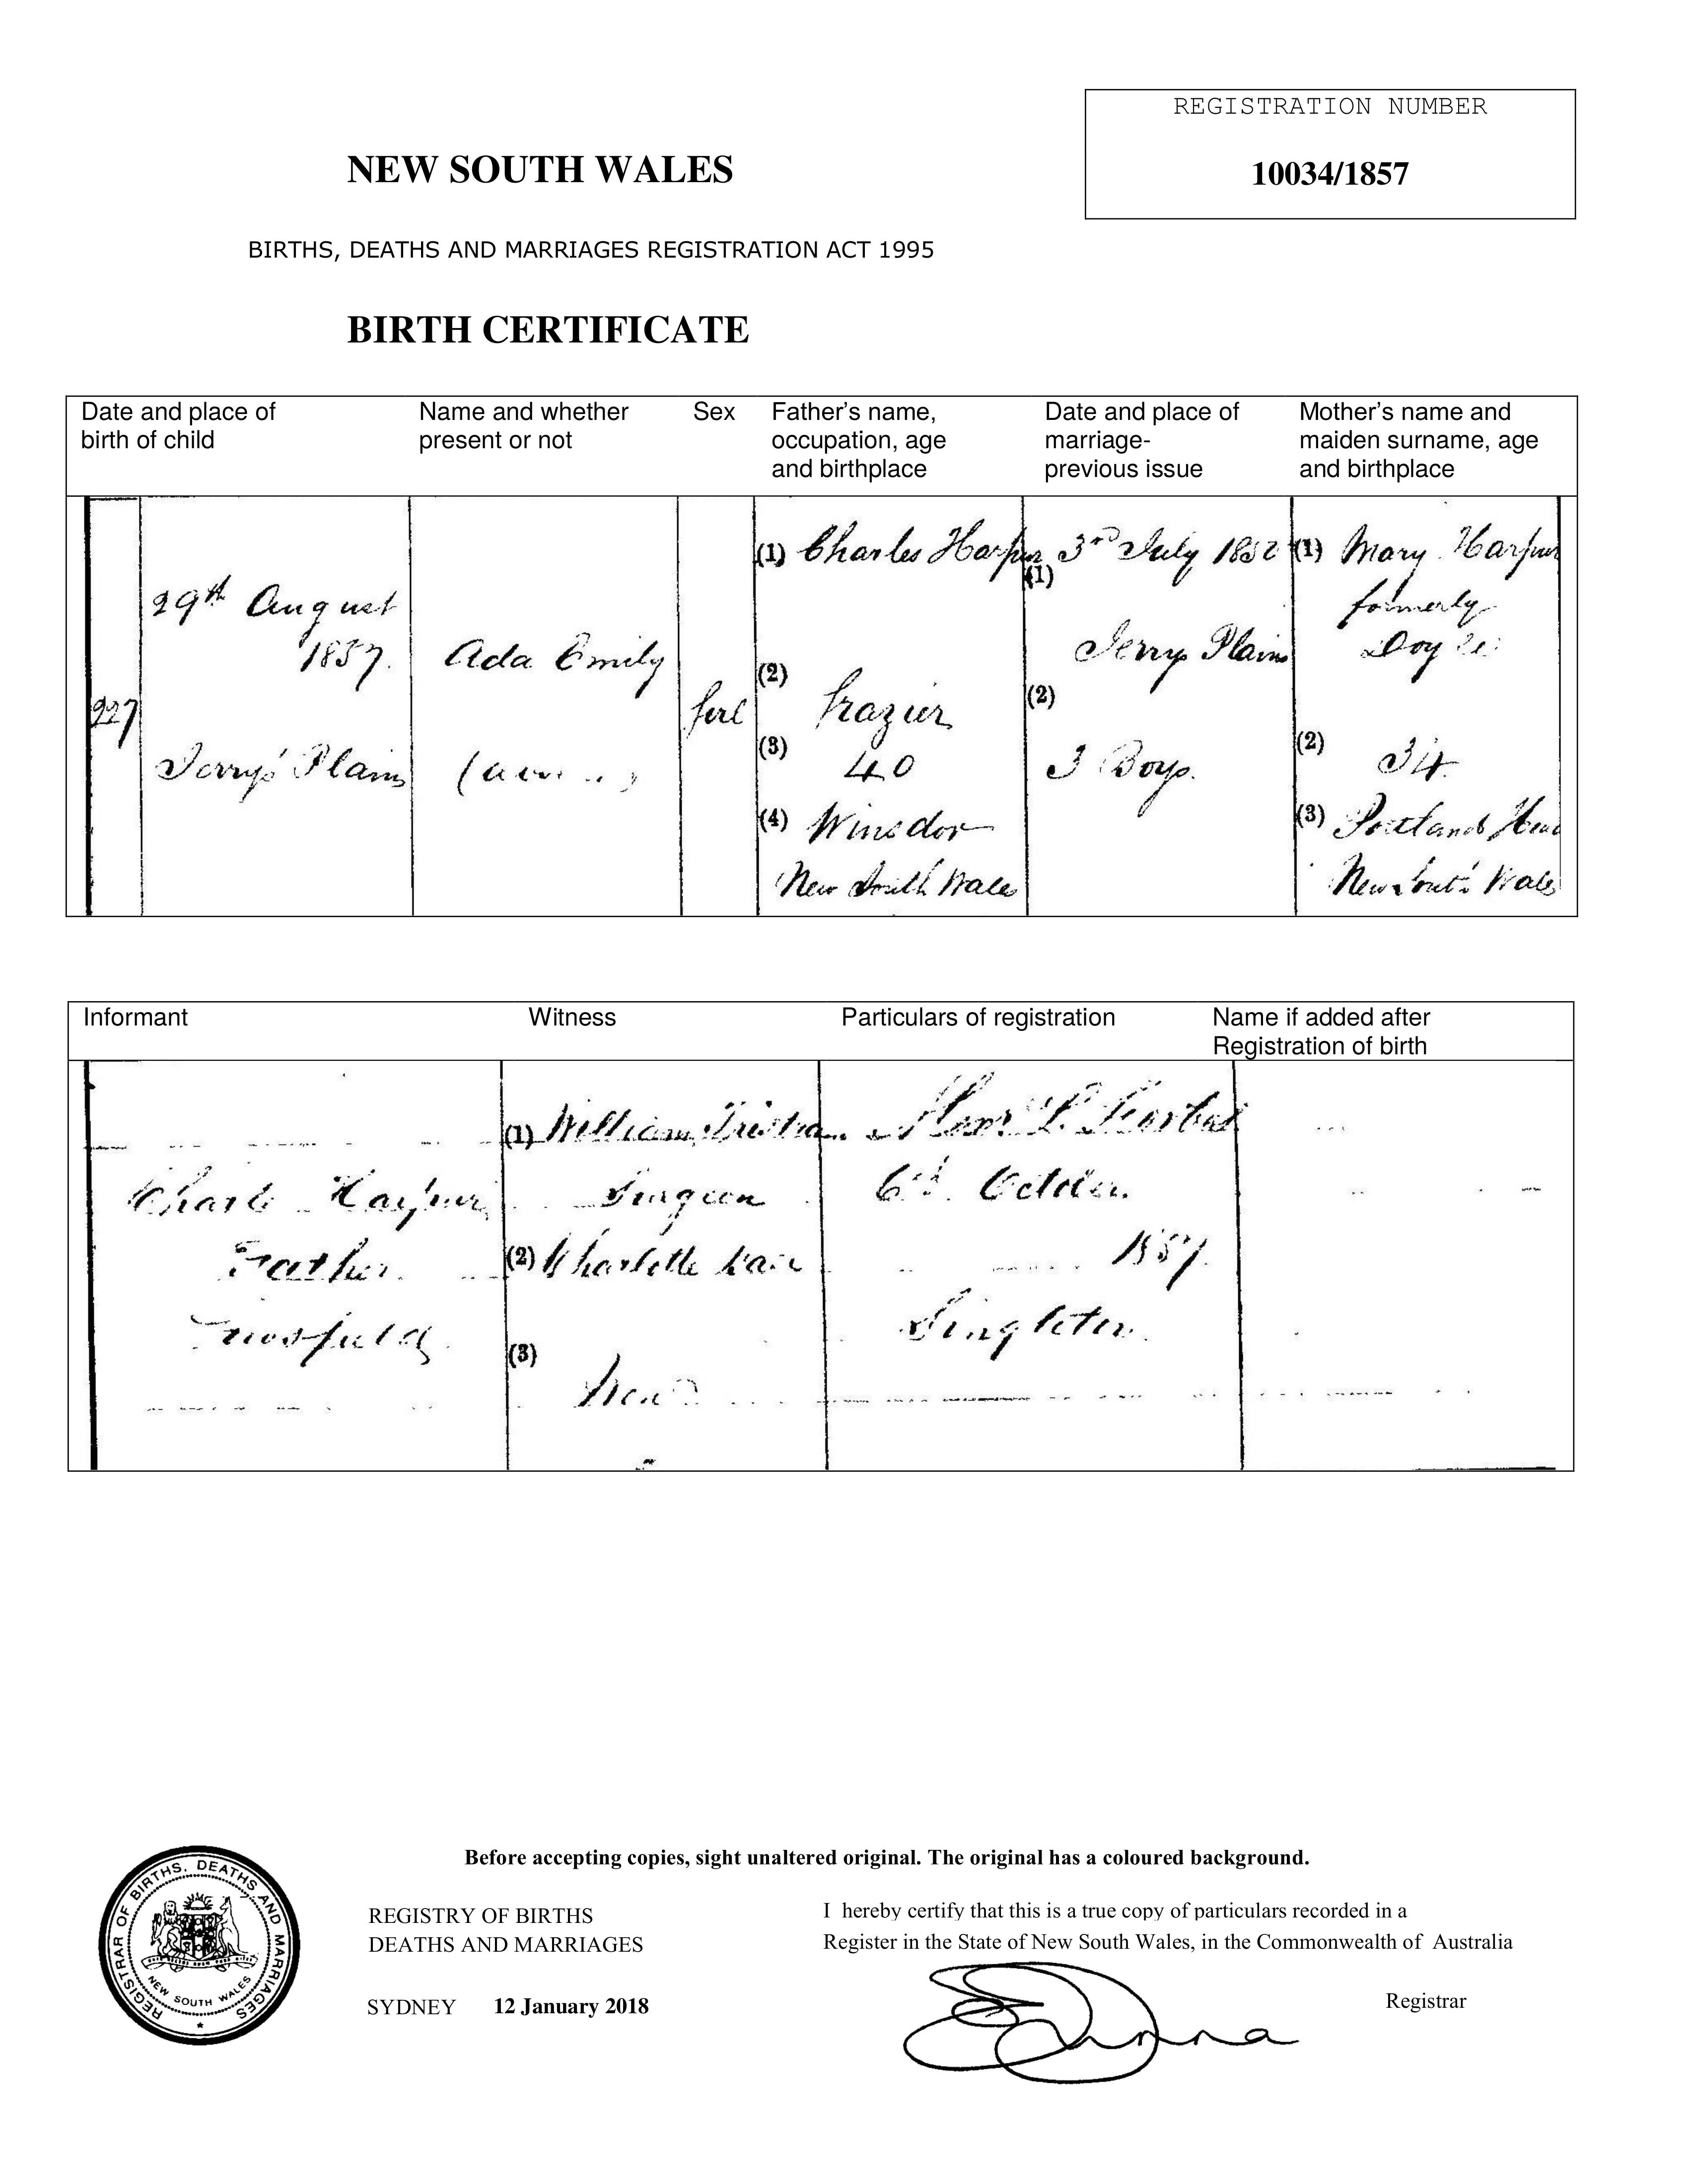 REGISTRATION NUMBER
10034/1857
NEW SOUTH WALES
BIRTHS, DEATHS AND MARRIAGES REGISTRATION ACT 1995
BIRTH CERTIFICATE
Date and place of birth of child
Name and whether present or not
Sex
Father's name, occupation, age and birthplace
Date and place of marriage- previous issue
Mother's name and maiden surname, age and birthplace
227
29th August
1857.
Jerrys Plains
Ada Emily
Girl
(1) Charles Harpur
(2) Grazier
(3) 40
(4) Winsdor
New South Wales
(1) 3rd July 1852
Jerrys Plains
(2)
3 Boys.
(1) Mary Harpur
formerly
Doyle
(2) 34
(3) Portland Head
New South Wales
Informant
Witness
Particulars of registration
Name if added after
Registration of birth
Charles Harpur
Father
(1) William
Surgeon
(2) Charlotte
(3)
October
1857.
Singleton
Before accepting copies, sight unaltered original. The original has a coloured background.
REGISTRAR OF BIRTHS, DEATHS AND MARRIAGES
NEW SOUTH WALES
REGISTRY OF BIRTHS
DEATHS AND MARRIAGES
SYDNEY 12 January 2018
I hereby certify that this is a true copy of particulars recorded in a
Register in the State of New South Wales, in the Commonwealth of Australia
Registrar